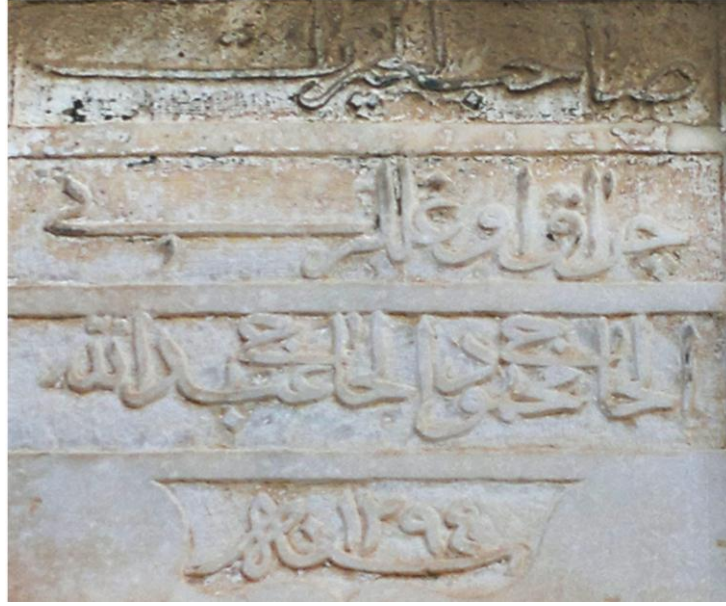 صاحب الخیرات
چراق اوغللری
الحاج محمود الحاج عبدالله
سنه ١٢٩٤